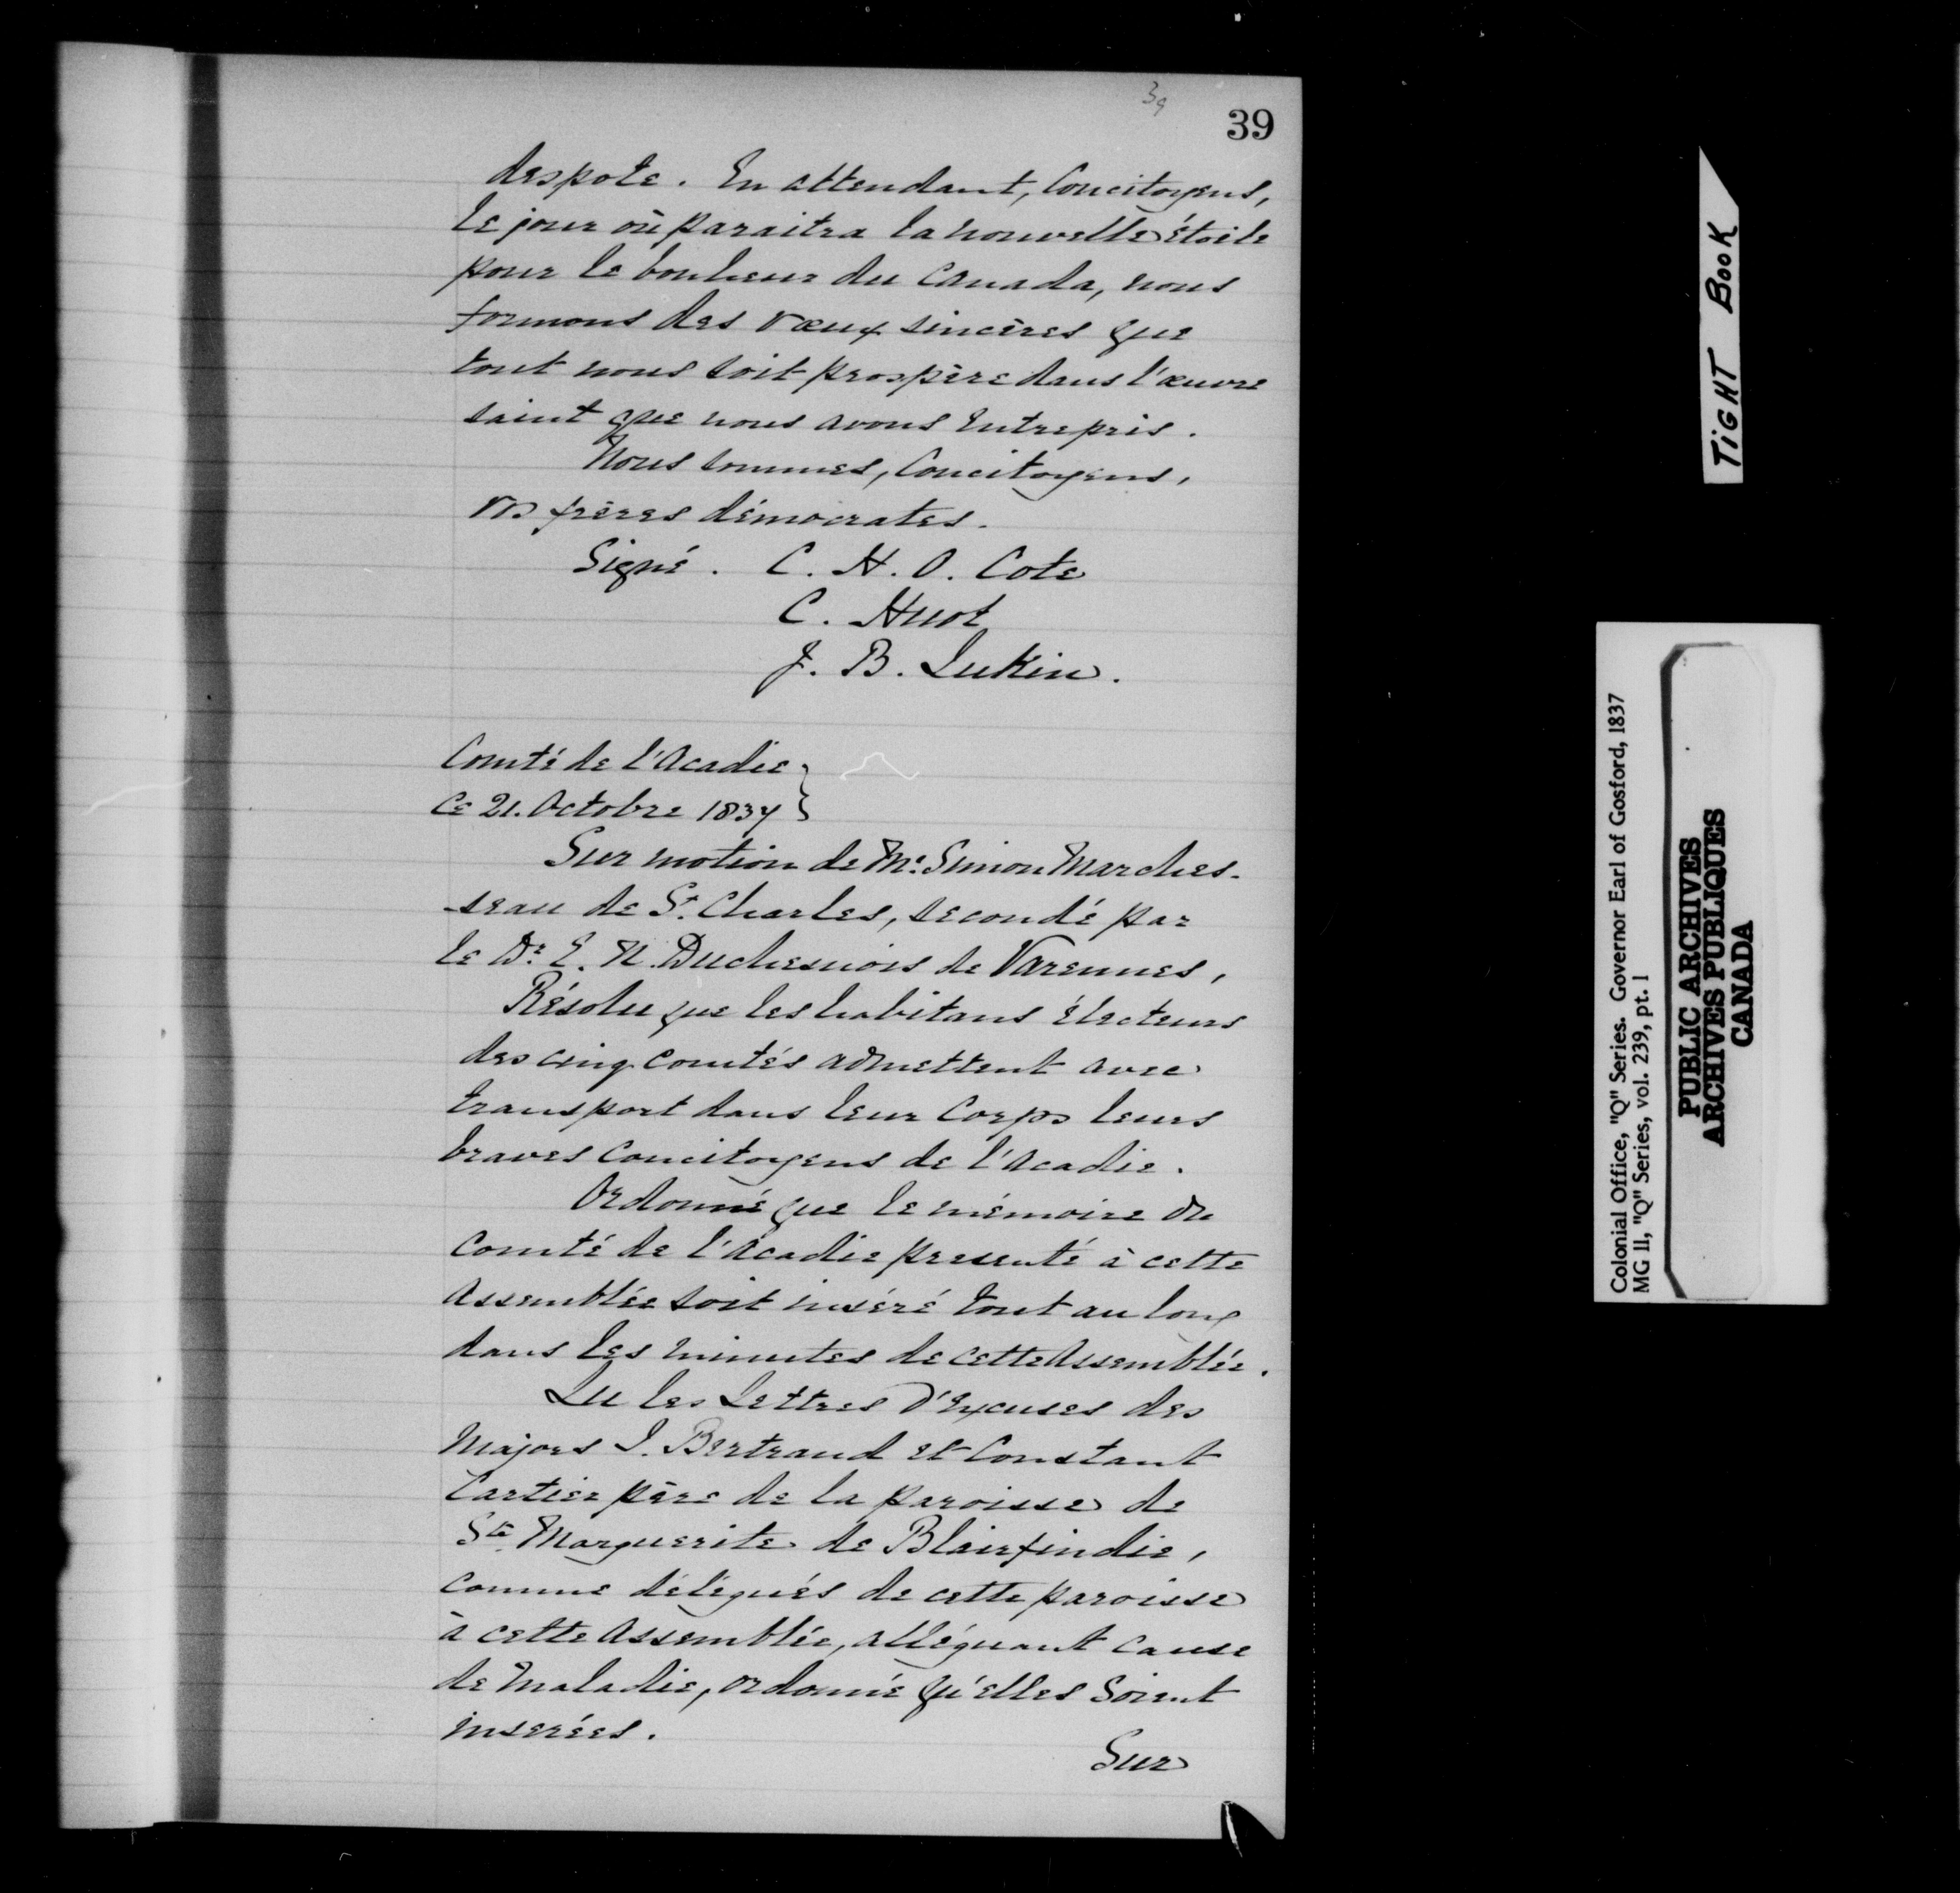 39
39
despote. En attendant, Concitoyens,
le jour où paraitra la nouvelle étoile
pour le bonheur du Canada, nous
formons des vœux sincères que
tout nous soit prospère dans l'œuvre
saint que nous avons entrepris.
Nous sommes, Concitoyens,
vos frères démocrates.
Signé. C. H. O. Cote
C. Huot
J. B. Lukin.
Comté de l'Acadie
Ce 21. Octobre 1837
Sur motion de Mr. Simon Marches-
-seau de St. Charles, secondé par
le Dr. E. N. Duchesnois de Varennes,
Résolu que les habitans électeurs
des cinq comtés admettent avec
transport dans leur Corps leurs
braves Concitoyens de l'Acadie.
Ordonné que le mémoire du
Comté de l'Acadie presenté à cette
Assemblée soit inséré tout au long
dans les minutes de cette Assemblée.
Lu les Lettres d'excuses des
Majors I. Bertrand et Constant
Cartier père de la paroisse de
Ste. Marguerite de Blairfindie,
comme délégués de cette paroisse
à cette Assemblée, alléguant cause
de Maladie, ordonné qu'elles soient
inserées.
Sur
TIGHT BOOK
Colonial Office, "Q" Series. Governor Earl of Gosford, 1837
MG 11, "Q" Series, vol. 239, pt. 1
PUBLIC ARCHIVES
ARCHIVES PUBLIQUES
CANADA